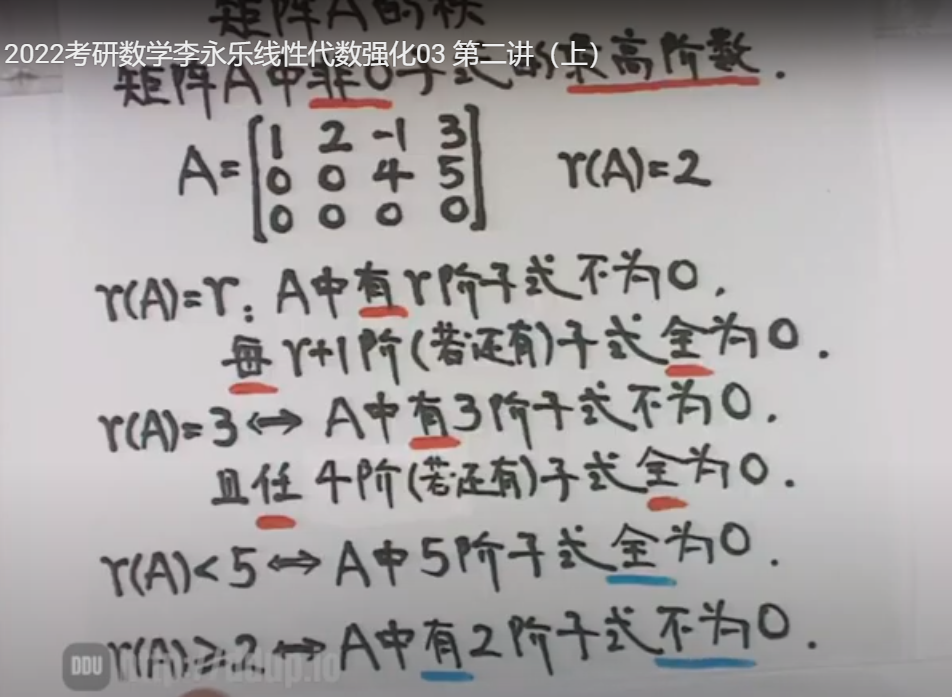 矩阵A的秩
2022考研数学李永乐线性代数强化03 第二讲（上）
矩阵A中非0子式的最高阶数.
A=[1 2 -1 3
0 0 4 5
0 0 0 0] r(A)=2
r(A)=r: A中有r阶子式不为0,
每r+1阶(若还有)子式全为0.
r(A)=3⇔A中有3阶子式不为0.
且任4阶(若还有)子式全为0.
r(A)<5⇔A中5阶子式全为0.
r(A)≥2⇔A中有2阶子式不为0.
DDU